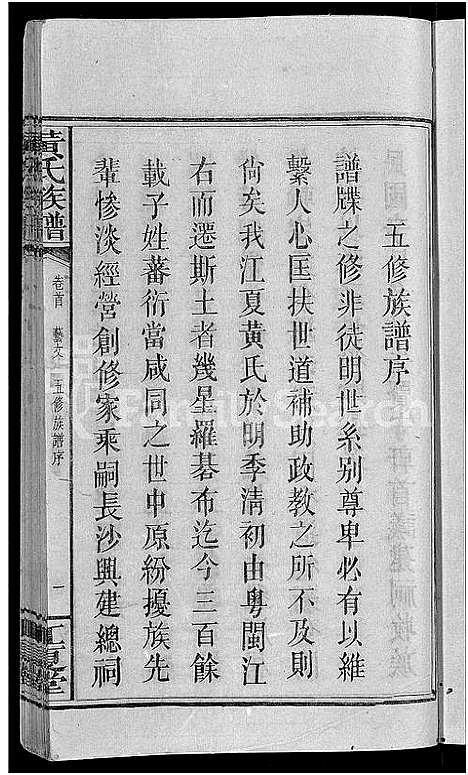 五修族譜序
譜牒之修非徒明世系別尊卑必有以維
繫人心匡扶世道補助政教之所不及則
尚矣我江夏黃氏於明季清初由粵閩江
右而遷斯土者幾星羅棊布迄今三百餘
載子姓蕃衍當咸同之世中原紛擾族先
輩慘淡經營創修家乘嗣長沙興建總祠
黃氏族譜
卷首 藝文 五修族譜序
一
江夏堂
FamilySearch